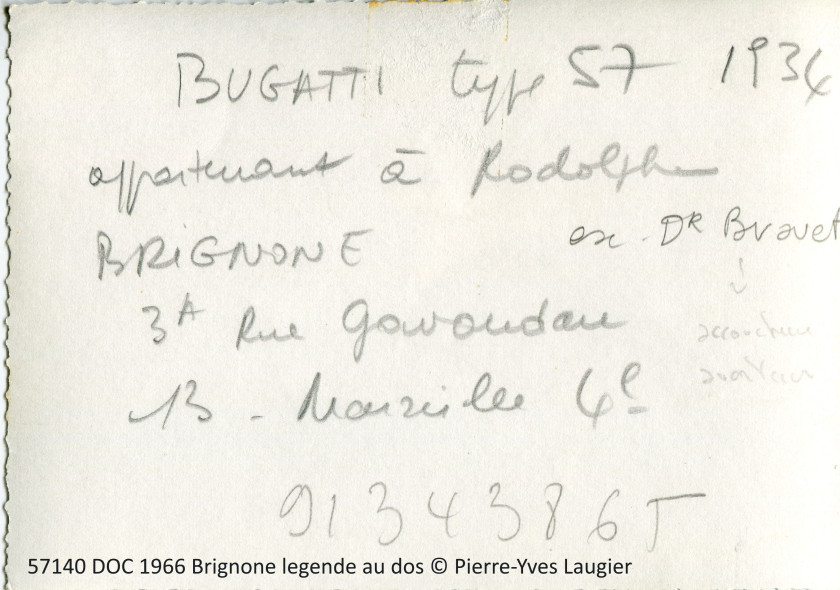 BUGATTI type 57 1934
appartenant à Rodolphe
BRIGNONE ex. DR Bravet
3A Rue Gavoudan
13 - Marseille 4e
accoucheur
91343865
57140 DOC 1966 Brignone legende au dos © Pierre-Yves Laugier